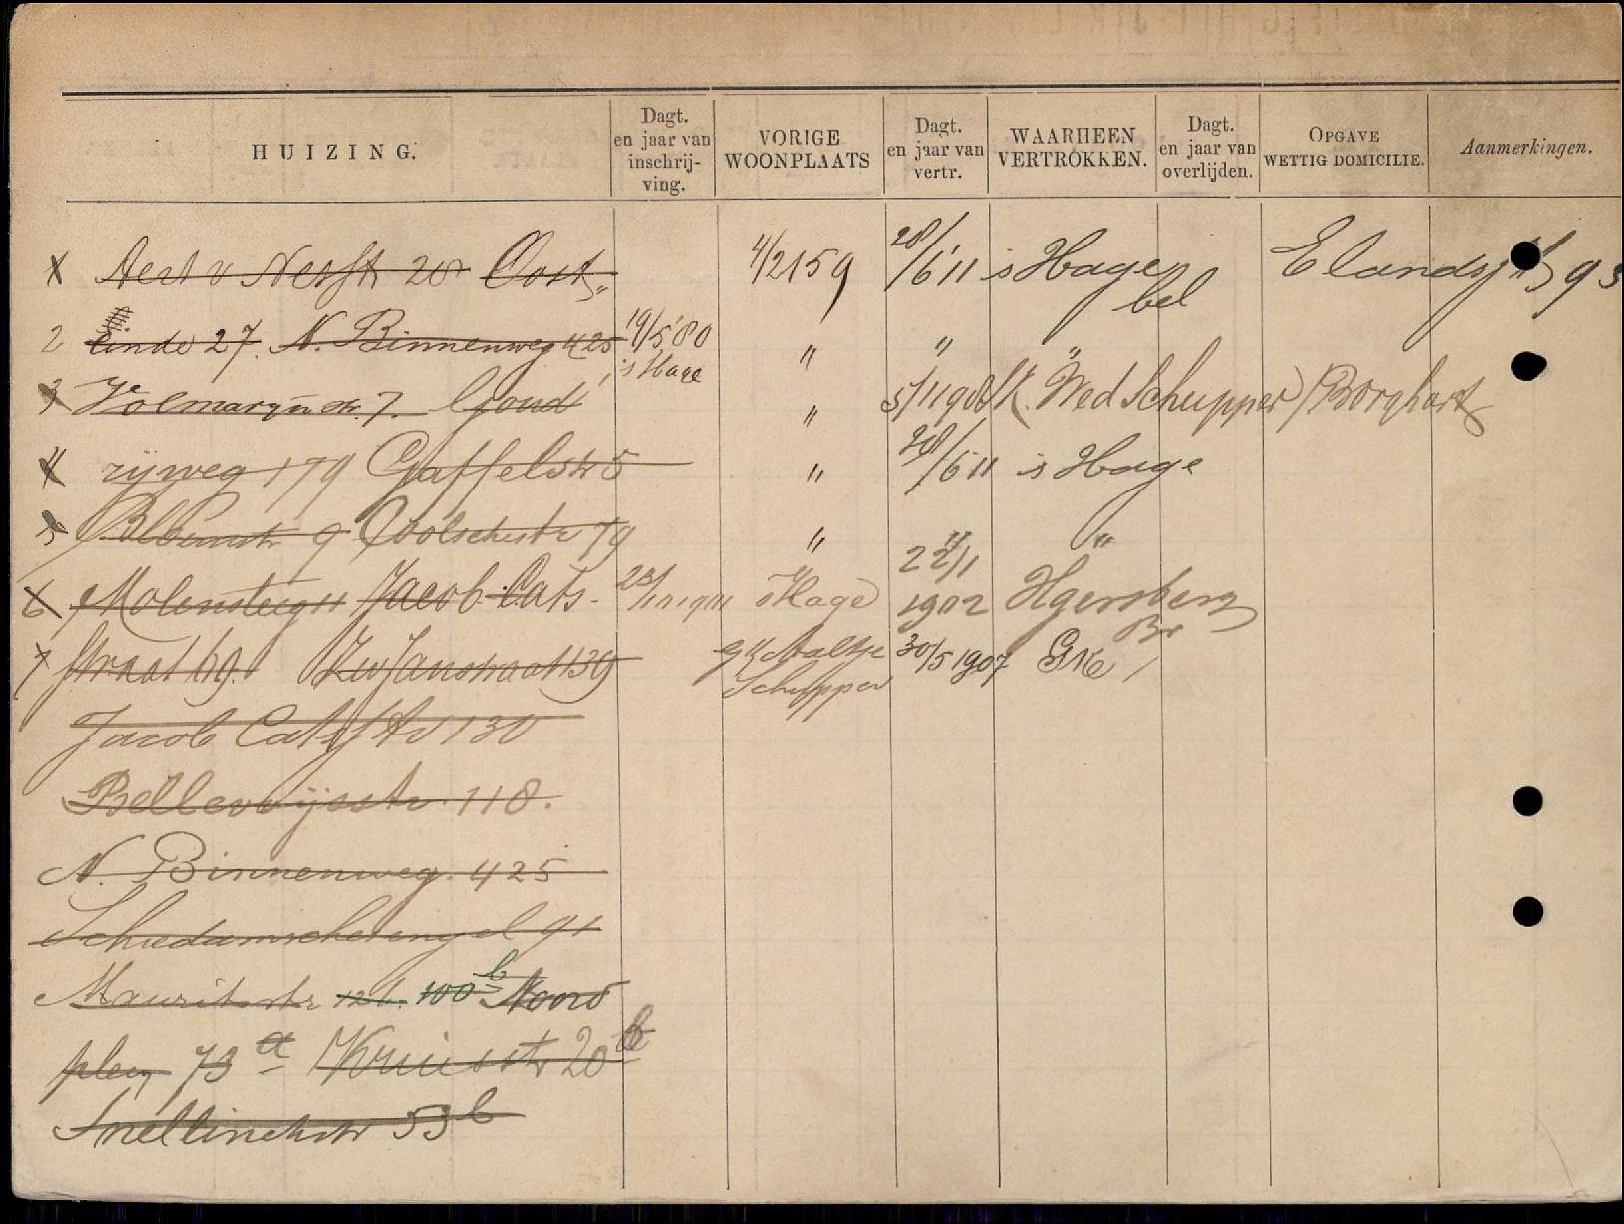 HUIZING. Dagt. en jaar van inschrijving. VORIGE WOONPLAATS Dagt. en jaar van vertr. WAARHEEN VERTROKKEN. Dagt. en jaar van overlijden. OPGAVE WETTIG DOMICILIE. Aanmerkingen.
Aert v Nesstr 28 Oost 4/2159 28/6'11 s Hage bel 93
2 einde 27. N. Binnenweg 425 19/5'80 's Hage " " "
3 Volmarijnstr. 7. Goud " Wed Schupper / Borghart
4 rijweg 179 Gaffelstr 5 " 28/6'11 's Hage
5 Bloemstr 9 Coolschestr 79 " "
6 Molensteeg 11 Jacob Cats- 's Hage 1902
7 straat 69. Zw Janstraat 139 Aaltje Schupper 30/5 1907
Jacob Catsstr 130
Bellevoijsstr. 118.
N. Binnenweg. 425
Schiedamschesingel 91
Mauritsstr 12b. 100b Noord
plein 73a Kruisstr 20b
Snellinckstr 53b